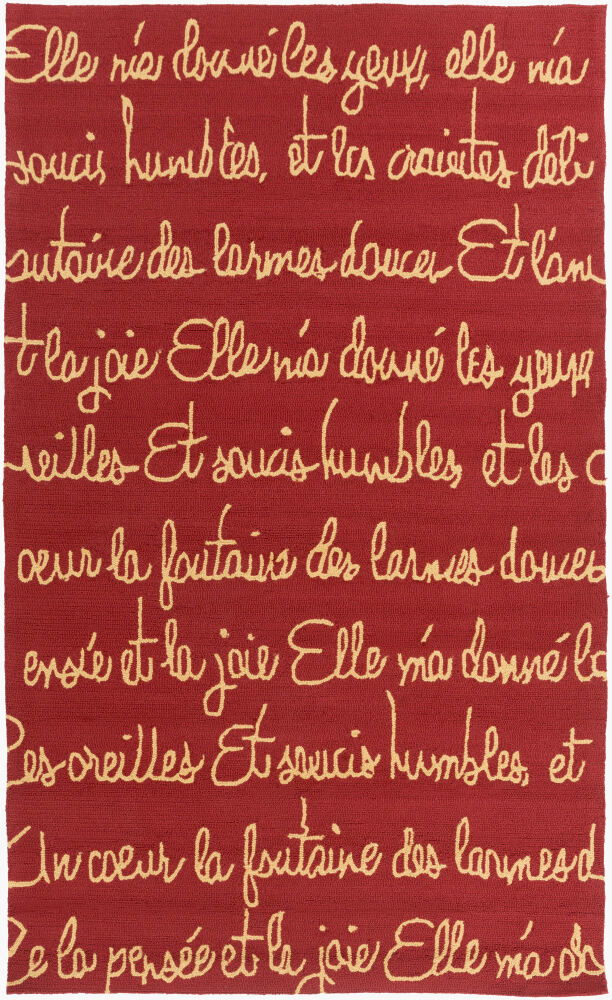 Elle m'a donné les yeux, elle m'a
soucis humbles, et les craintes déli
outaine des larmes douces Et l'am
t la joie Elle m'a donné les yeux
reilles Et soucis humbles, et les c
oeur la fontaine des larmes douces
ensée et la joie Elle m'a donné le
les oreilles Et soucis humbles, et
Un coeur la fontaine des larmes d
De la pensée et la joie Elle m'a do